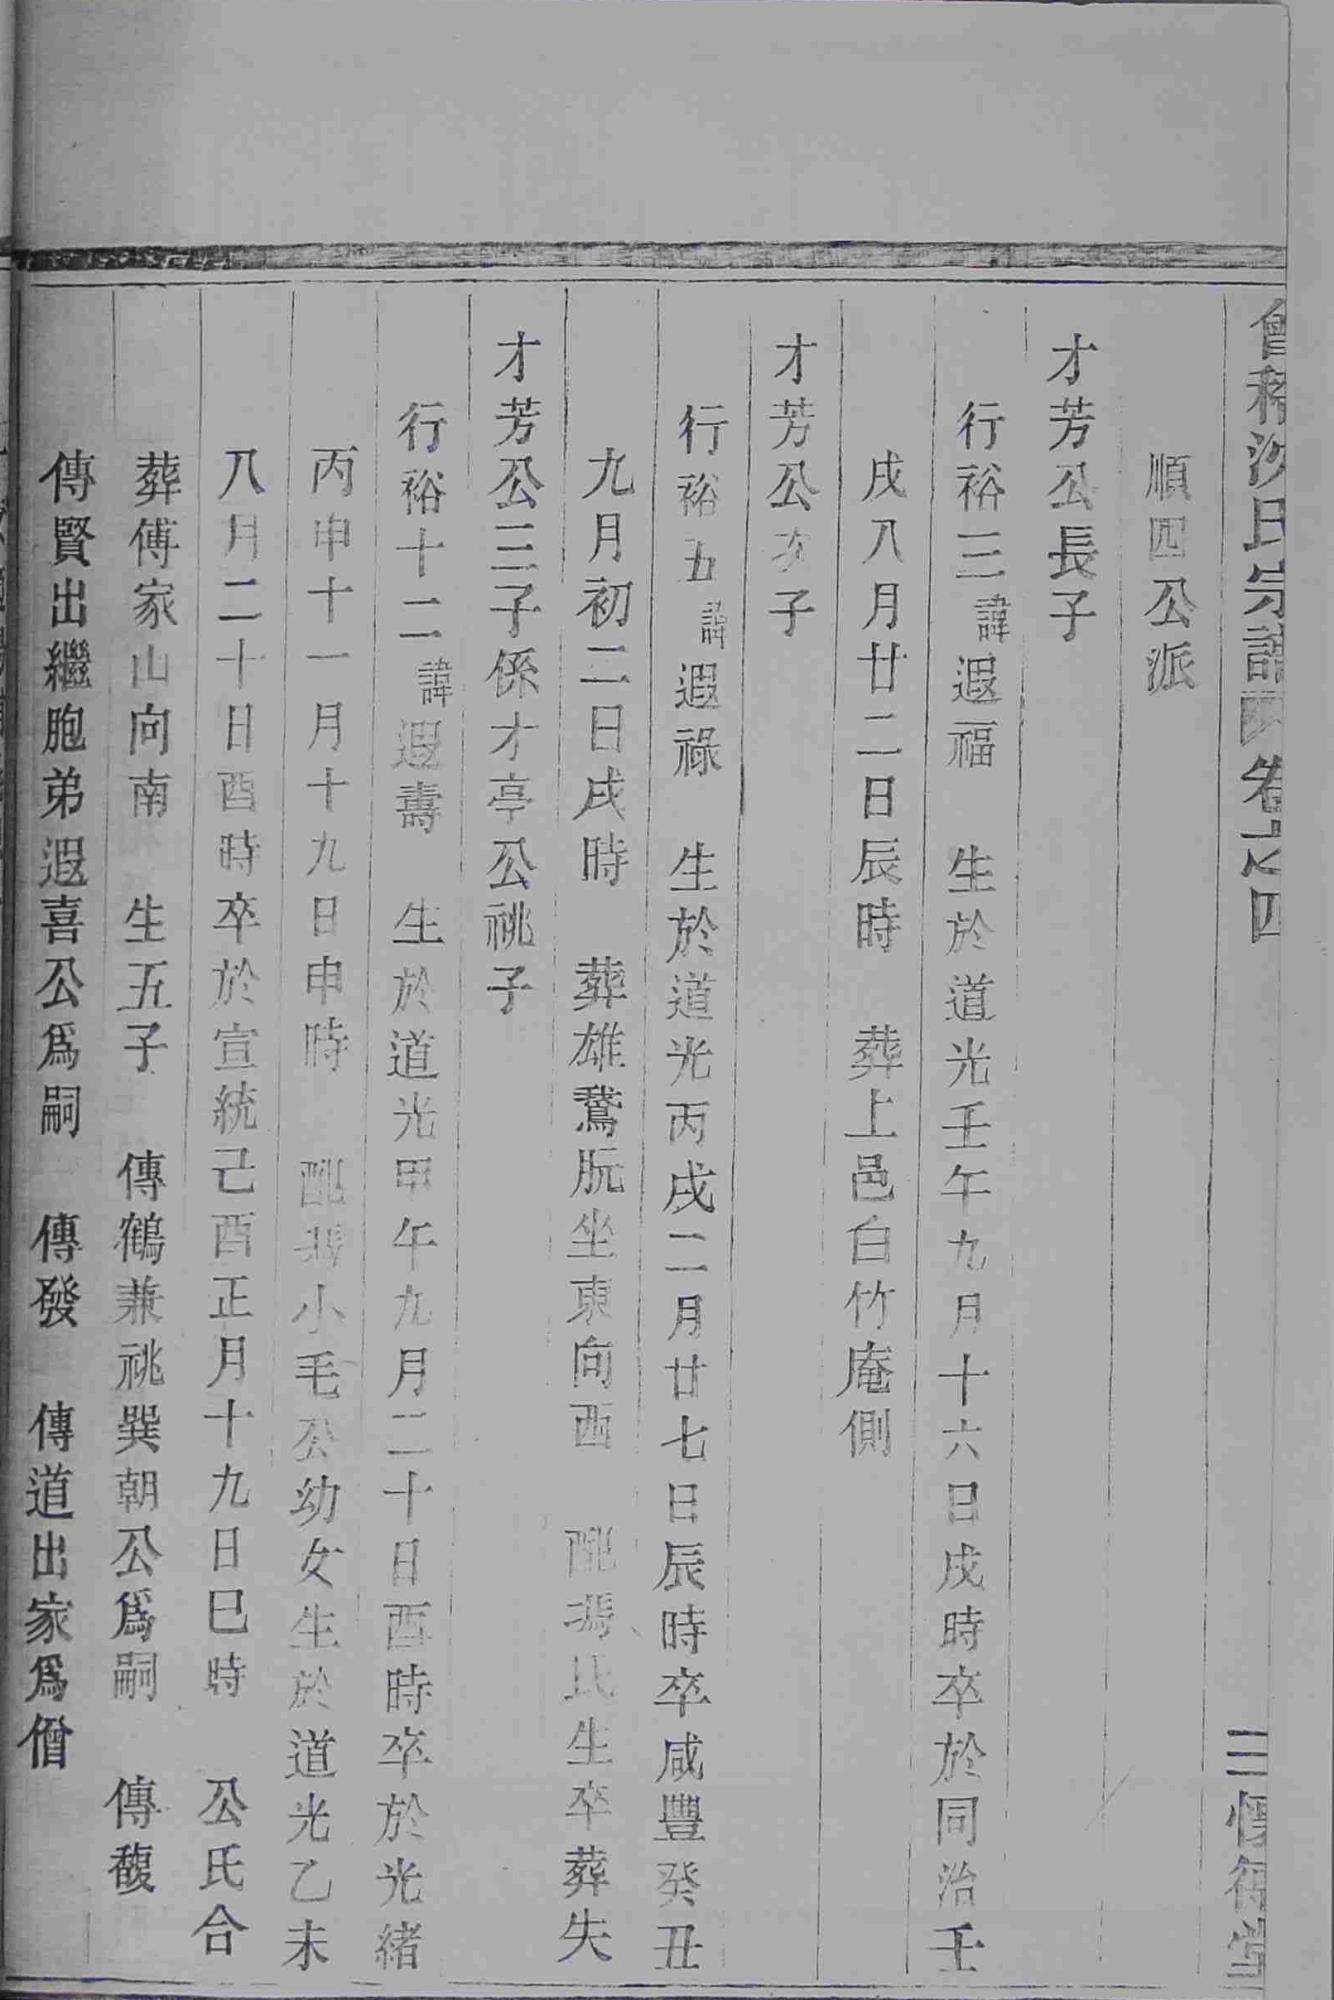 會稽沈氏宗譜 卷之四 三 堂
順四公派
才芳公長子
行裕三諱遐福 生於道光壬午九月十六日戌時卒於同治壬
戌八月廿二日辰時 葬上邑白竹庵側
才芳公次子
行裕五諱遐祿 生於道光丙戌二月廿七日辰時卒咸豐癸丑
九月初二日戌時 葬雄鵞朊坐東向西 配馮氏生卒葬失
才芳公三子係才亭公祧子
行裕十二諱遐壽 生於道光甲午九月二十日酉時卒於光緒
丙申十一月十九日申時 配馮小毛公幼女生於道光乙未
八月二十日酉時卒於宣統己酉正月十九日巳時 公氏合
葬傅家山向南 生五子 傳鶴兼祧巽朝公爲嗣 傳馥
傳賢出繼胞弟遐喜公爲嗣 傳發 傳道出家爲僧